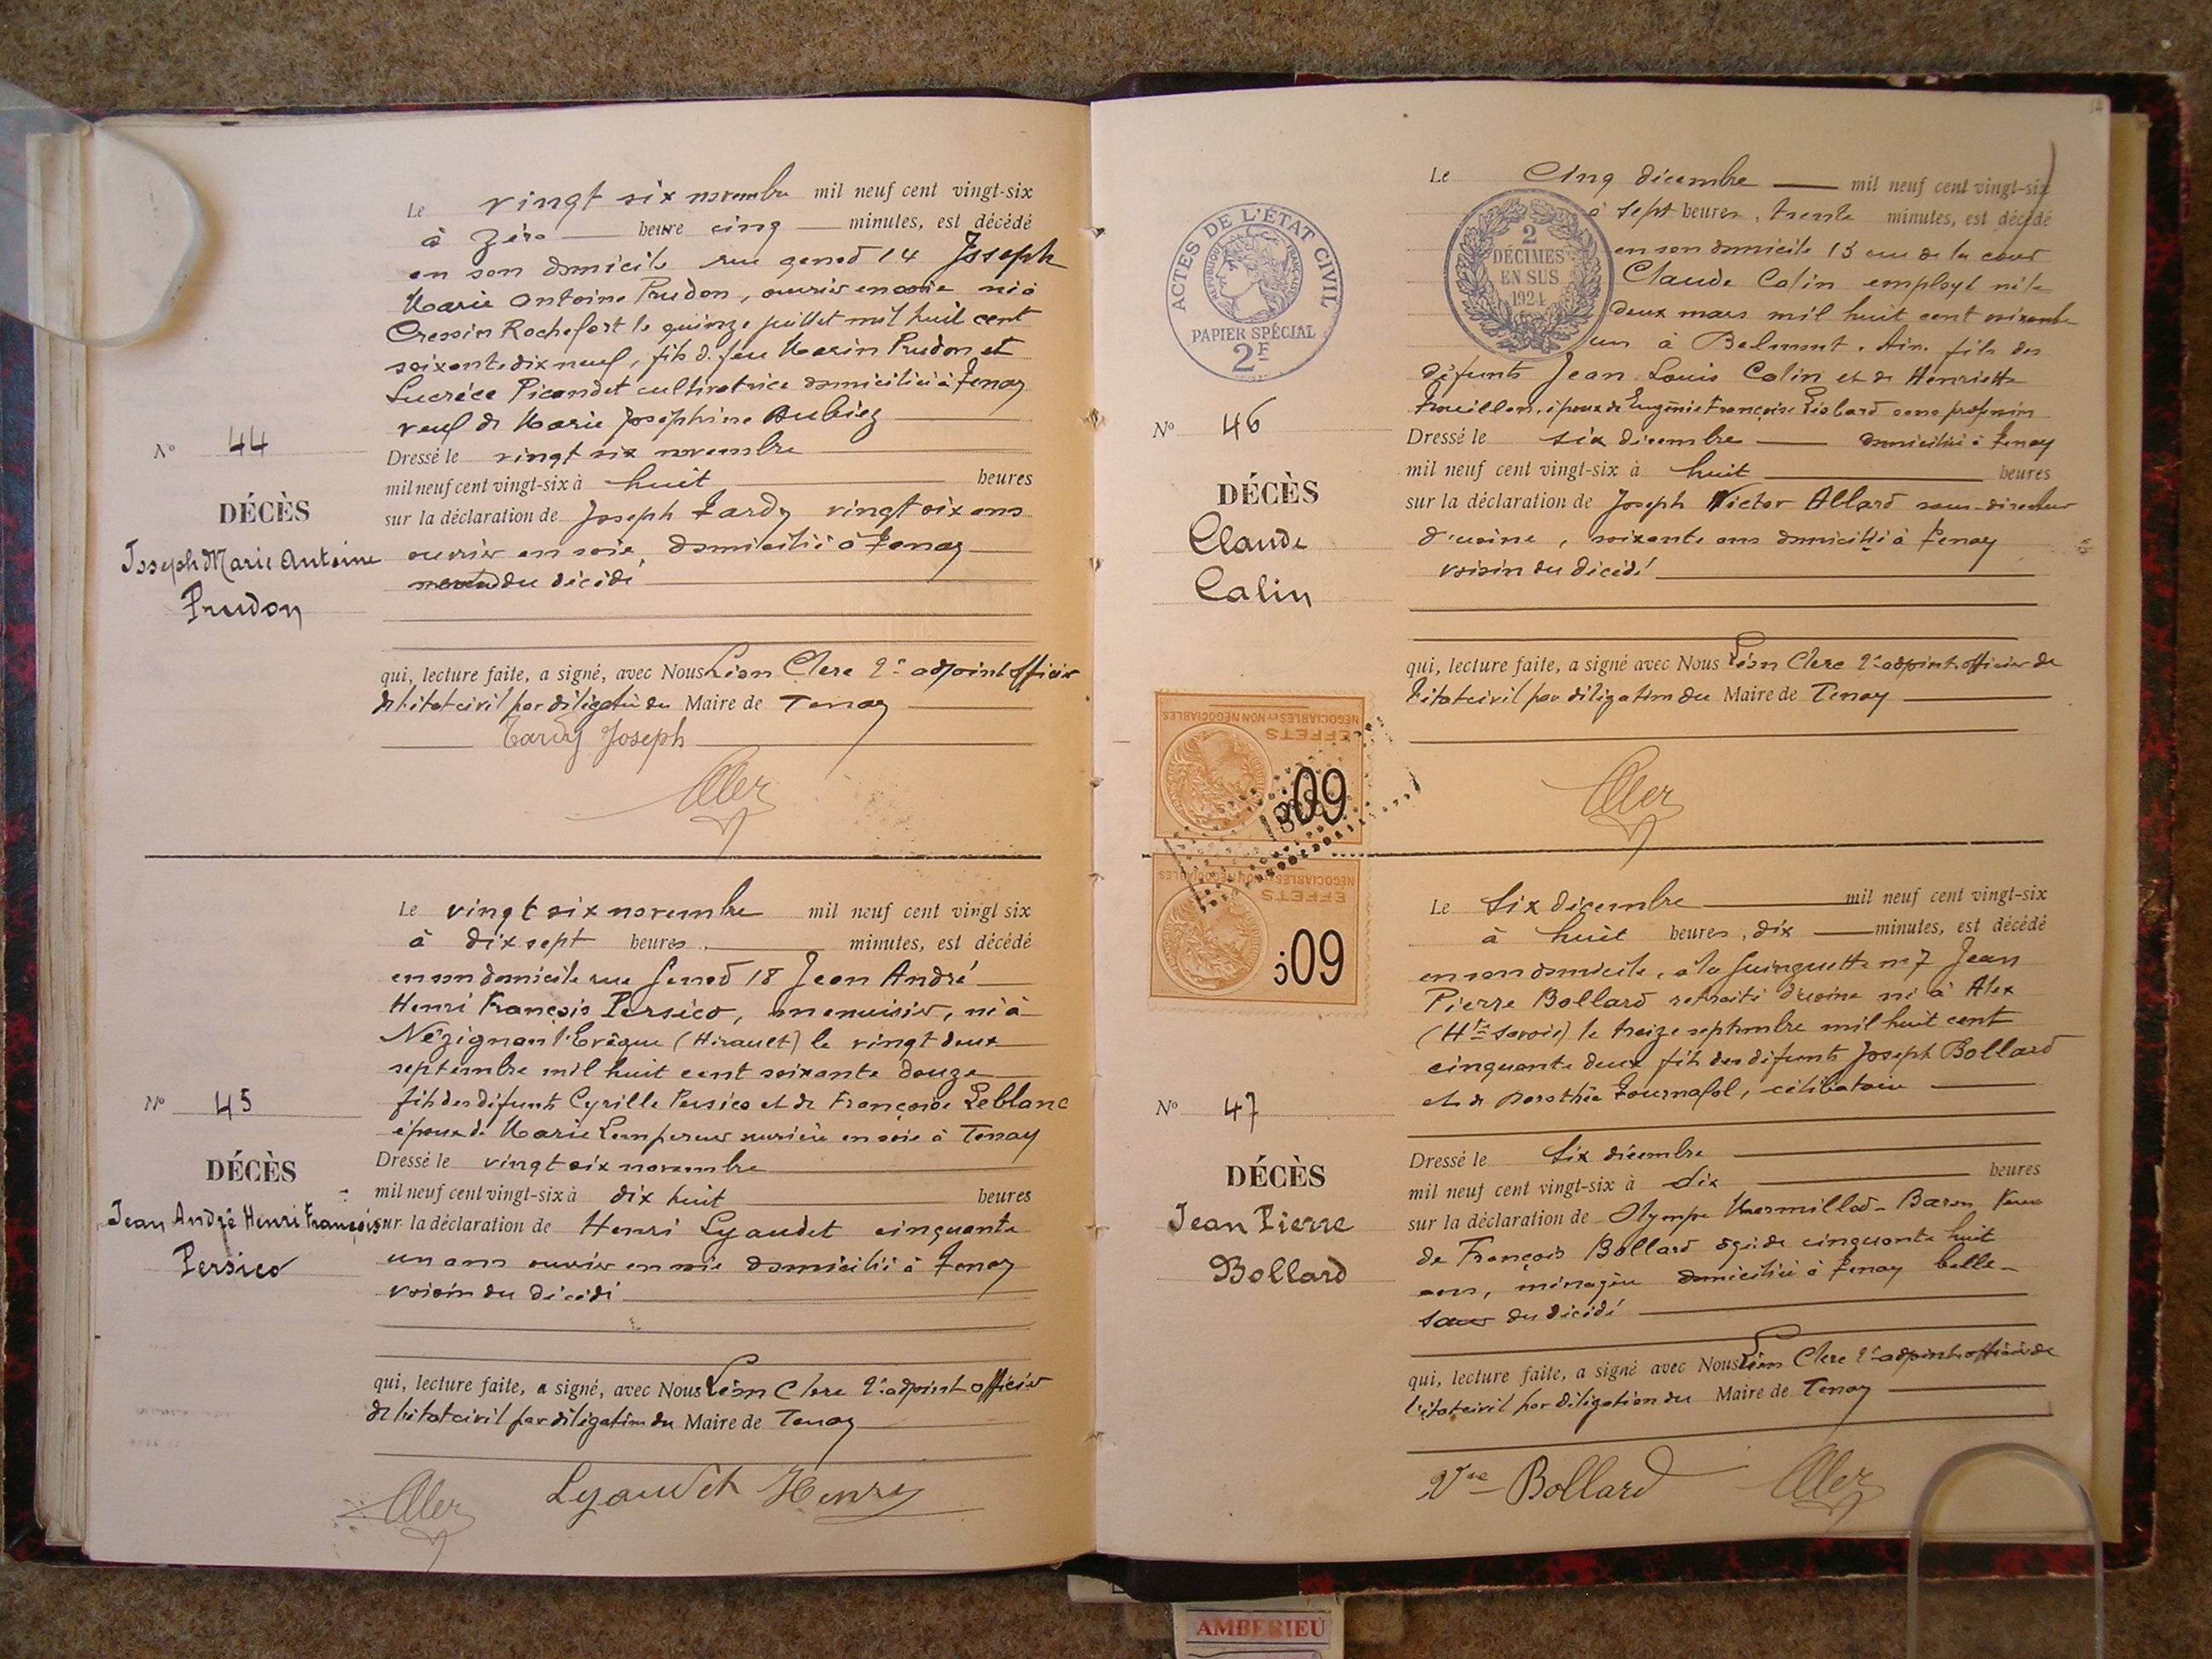 Le vingt six novembre mil neuf cent vingt-six
à zéro heure cinq minutes, est décédé
en son domicile rue genod 14 Joseph
Marie Antoine Prudon, ouvrier en soie né à
Cressin Rochefort le quinze juillet mil huit cent
soixante dix neuf, fils d. feu Marin Prudon et
Lucrèce Picandet cultivatrice domiciliée à Tenay
veuf de Marie Joséphine Aubiez
Dressé le vingt six novembre
mil neuf cent vingt-six à huit heures
sur la déclaration de Joseph Tardy vingt six ans
ouvrier en soie domicilié à Tenay
neveu du décédé
qui, lecture faite, a signé, avec Nous Léon Clerc 2e adjoint officier
de l'état civil par délégation du Maire de Tenay
Tardy Joseph
N° 44
DÉCÈS
Joseph Marie Antoine
Prudon
Le vingt six novembre mil neuf cent vingt six
à dix sept heures minutes, est décédé
en son domicile rue Genod 18 Jean André
Henri François Persico, menuisier, né à
Nézignan l'Evêque (Hérault) le vingt deux
septembre mil huit cent soixante douze
fils des défunts Cyrille Persico et de Françoise Leblanc
époux de Marie Lempereur ouvrière en soie à Tenay
Dressé le vingt six novembre
mil neuf cent vingt-six à dix huit heures
sur la déclaration de Henri Lyaudet cinquante
un ans ouvrier en soie domicilié à Tenay
voisin du décédé
qui, lecture faite, a signé, avec Nous Léon Clerc 2e adjoint officier
de l'état civil par délégation du Maire de Tenay
Lyaudet Henry
N° 45
DÉCÈS
Jean André Henri François
Persico
Le Cinq décembre mil neuf cent vingt-six
à sept heures, trente minutes, est décédé
en son domicile 13 rue de la cour
Claude Calin employé né le
deux mars mil huit cent soixante
un à Belmont. Ain. fils des
défunts Jean Louis Calin et de Henriette
Trouillon, époux de Eugénie Françoise Liobard sans profession
Dressé le six décembre domiciliée à Tenay
mil neuf cent vingt-six à huit heures
sur la déclaration de Joseph Victor Allard sous-directeur
d'usine, soixante ans domicilié à Tenay
voisin du décédé
qui, lecture faite, a signé avec Nous Léon Clerc 2e adjoint officier de
l'état civil par délégation du Maire de Tenay
ACTES DE L'ÉTAT CIVIL
RÉPUBLIQUE FRANÇAISE
PAPIER SPÉCIAL
2F
2
DÉCIMES
EN SUS
1924
N° 46
DÉCÈS
Claude
Calin
NÉGOCIABLES ET NON NÉGOCIABLES
EFFETS
NÉGOCIABLES ET NON NÉGOCIABLES
EFFETS
Le Six décembre mil neuf cent vingt-six
à huit heures, dix minutes, est décédé
en son domicile, à la Guinguette n° 7 Jean
Pierre Bollard retraité d'usine né à Alex
(Hte Savoie) le treize septembre mil huit cent
cinquante deux fils des défunts Joseph Bollard
et de Dorothée Tournafol, célibataire
Dressé le Six décembre
mil neuf cent vingt-six à dix heures
sur la déclaration de Olympe Mermillod-Baron veuve
de François Bollard âgée de cinquante huit
ans, ménagère domiciliée à Tenay belle-
sœur du décédé
qui, lecture faite, a signé avec Nous Léon Clerc 2e adjoint officier de
l'état civil par délégation du Maire de Tenay
Vve Bollard
N° 47
DÉCÈS
Jean Pierre
Bollard
AMBERIEU